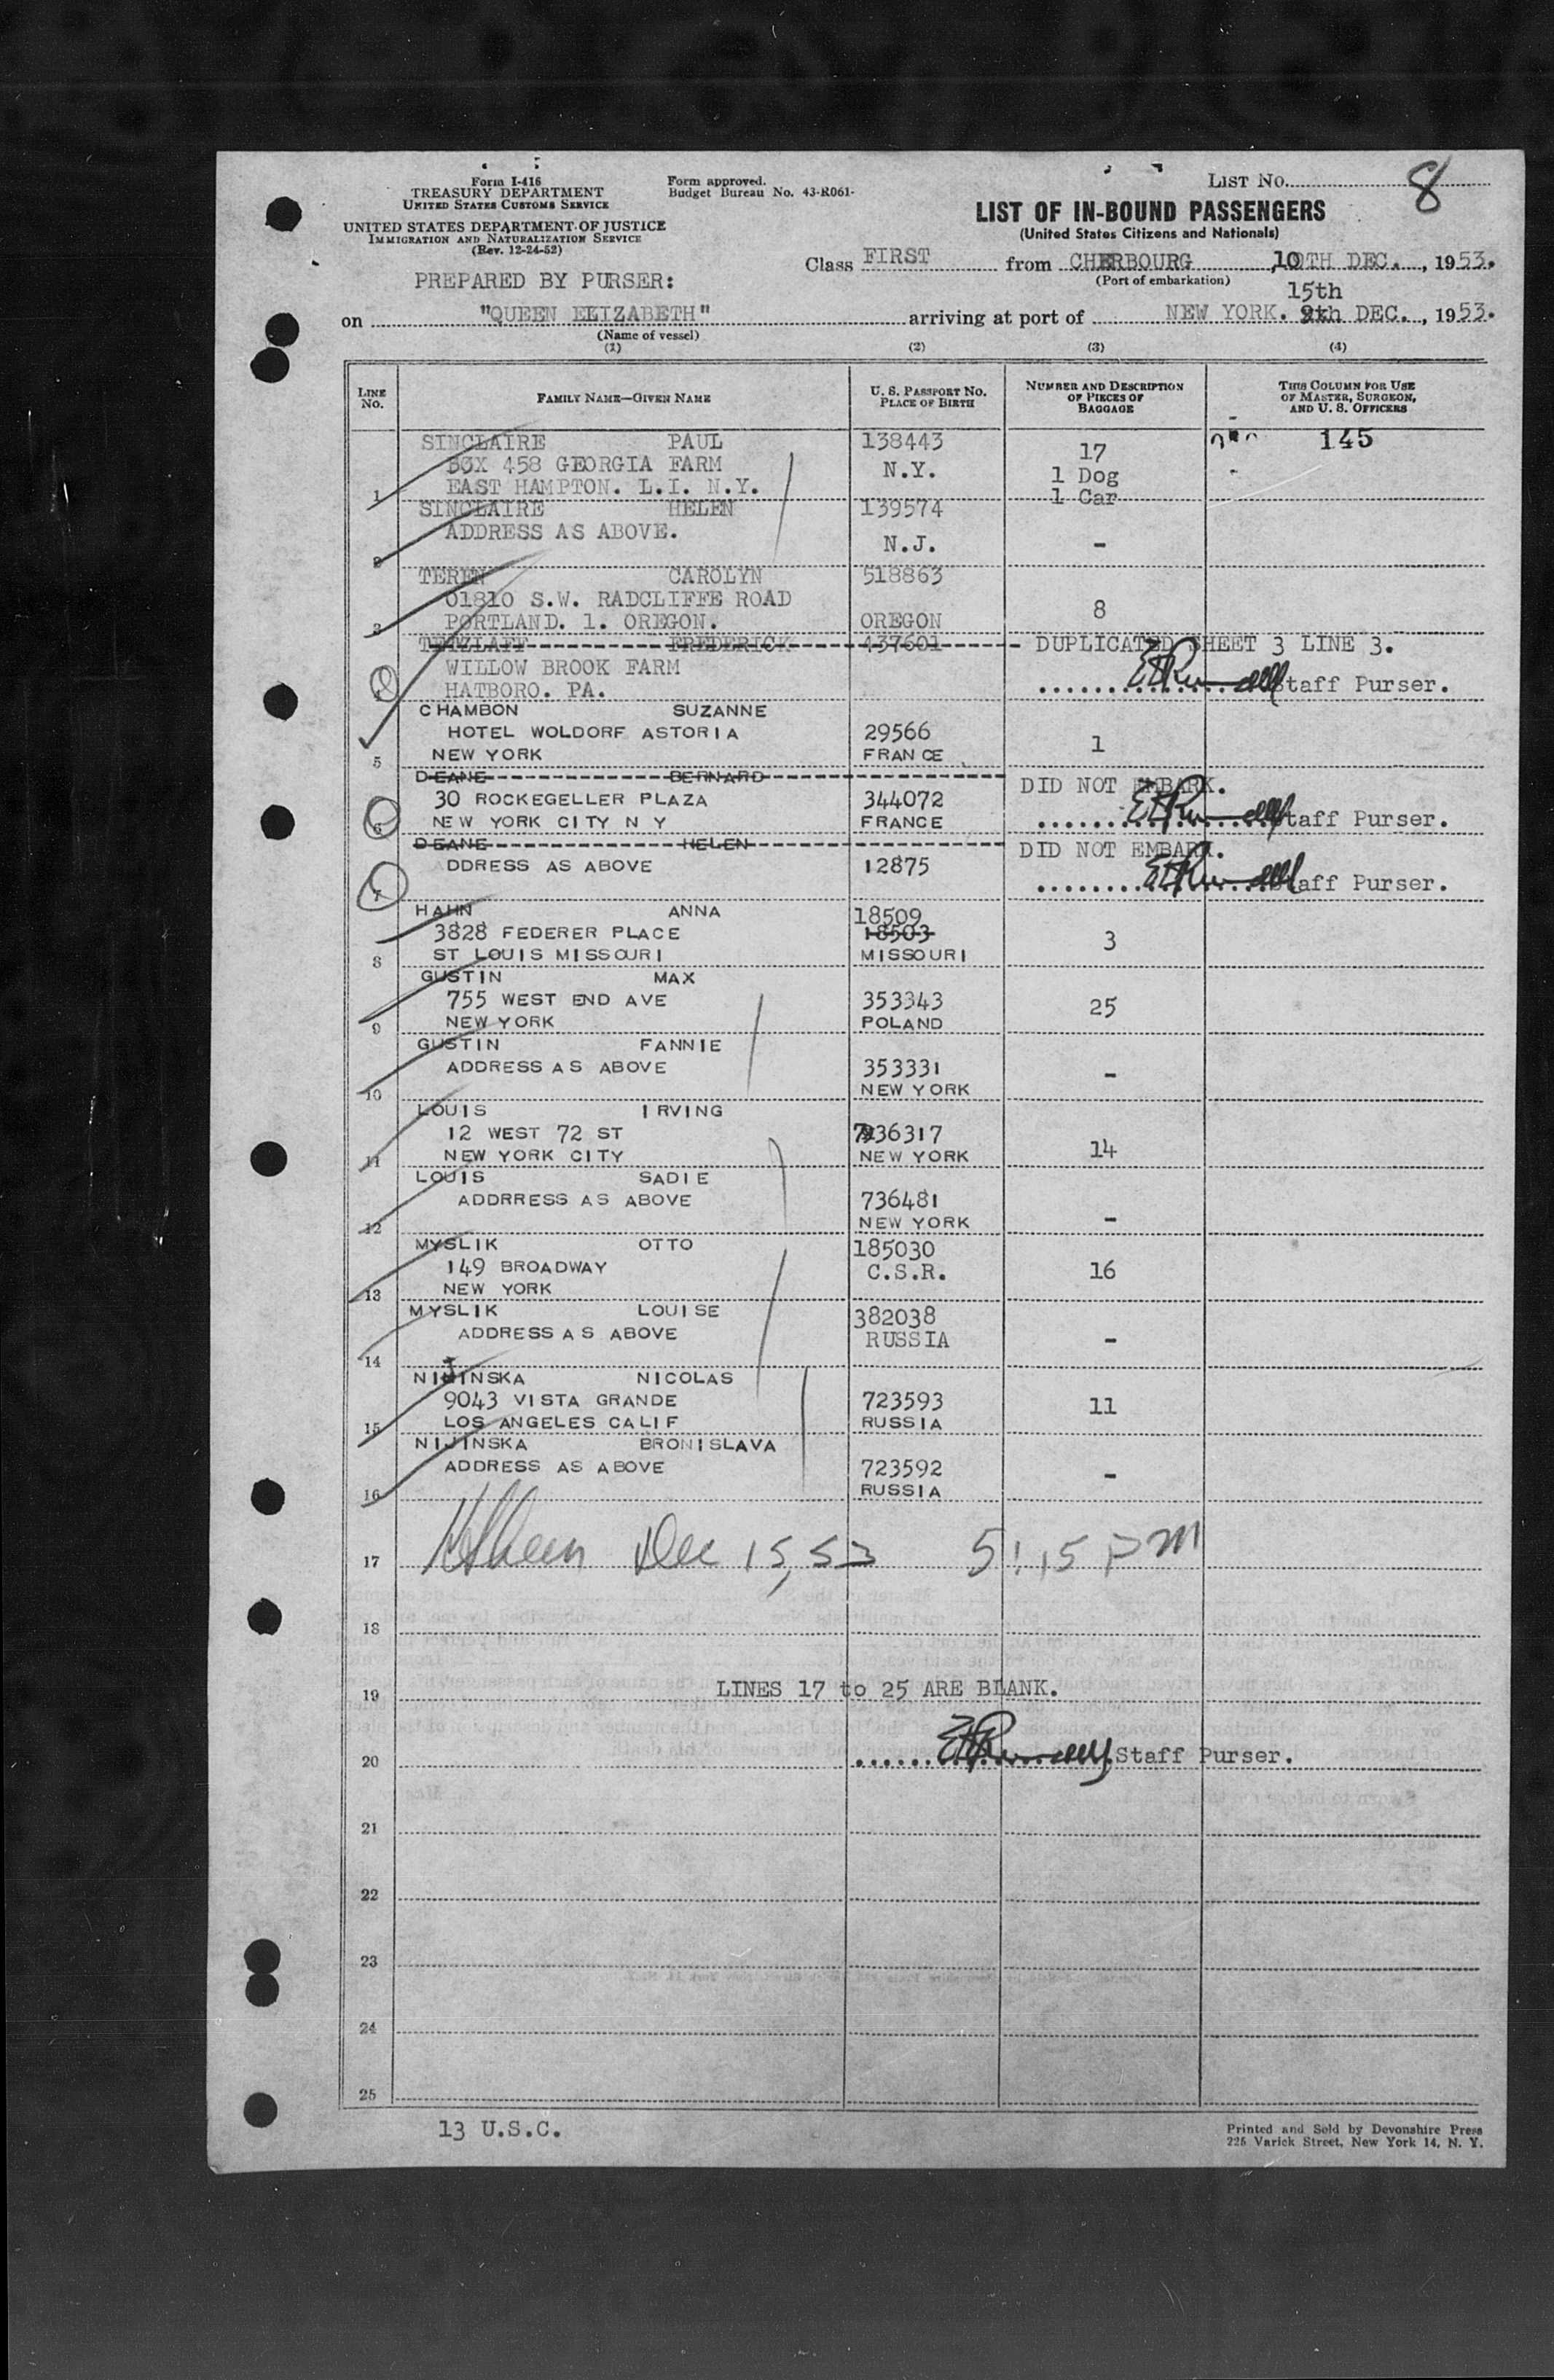 Form I-416
TREASURY DEPARTMENT
UNITED STATES CUSTOMS SERVICE
Form approved.
Budget Bureau No. 43-R061-
LIST NO. 8
UNITED STATES DEPARTMENT OF JUSTICE
IMMIGRATION AND NATURALIZATION SERVICE
(Rev. 12-24-52)
LIST OF IN-BOUND PASSENGERS
(United States Citizens and Nationals)
PREPARED BY PURSER:
Class FIRST from CHERBOURG, 10TH DEC., 1953.
(Port of embarkation)
15th
on "QUEEN ELIZABETH" arriving at port of NEW YORK. 9th DEC., 1953.
(Name of vessel)
(1) (2) (3) (4)
LINE NO.
FAMILY NAME—GIVEN NAME
U. S. PASSPORT NO.
PLACE OF BIRTH
NUMBER AND DESCRIPTION
OF PIECES OF
BAGGAGE
THIS COLUMN FOR USE
OF MASTER, SURGEON,
AND U. S. OFFICERS
SINCLAIRE PAUL 138443 17 145
BOX 458 GEORGIA FARM N.Y. 1 Dog
1 EAST HAMPTON. L.I. N.Y. 1 Car
SINCLAIRE HELEN 139574
ADDRESS AS ABOVE.
2 N.J. -
TEREN CAROLYN 518863
01810 S.W. RADCLIFFE ROAD 8
3 PORTLAND. 1. OREGON. OREGON
TETZLAFF FREDERICK 437601 DUPLICATED SHEET 3 LINE 3.
WILLOW BROOK FARM
HATBORO. PA. Staff Purser.
CHAMBON SUZANNE
HOTEL WOLDORF ASTORIA 29566 1
5 NEW YORK FRANCE
DEANE BERNARD DID NOT EMBARK.
30 ROCKEGELLER PLAZA 344072
6 NEW YORK CITY N Y FRANCE Staff Purser.
DEANE HELEN DID NOT EMBARK.
7 DDRESS AS ABOVE 12875 Staff Purser.
HAHN ANNA 18509
3828 FEDERER PLACE 18503 3
8 ST LOUIS MISSOURI MISSOURI
GUSTIN MAX
755 WEST END AVE 353343 25
9 NEW YORK POLAND
GUSTIN FANNIE
ADDRESS AS ABOVE 353331 -
10 NEW YORK
LOUIS IRVING
12 WEST 72 ST 736317 14
11 NEW YORK CITY NEW YORK
LOUIS SADIE
ADDRRESS AS ABOVE 736481
12 NEW YORK -
MYSLIK OTTO 185030
149 BROADWAY C.S.R. 16
13 NEW YORK
MYSLIK LOUISE 382038
ADDRESS AS ABOVE RUSSIA -
14
NIJINSKA NICOLAS
9043 VISTA GRANDE 723593 11
15 LOS ANGELES CALIF RUSSIA
NIJINSKA BRONISLAVA
ADDRESS AS ABOVE 723592 -
16 RUSSIA
17 Dec 15, 53 5:15 PM
18
19 LINES 17 to 25 ARE BLANK.
20 Staff Purser.
21
22
23
24
25
13 U.S.C.
Printed and Sold by Devonshire Press
225 Varick Street, New York 14, N. Y.